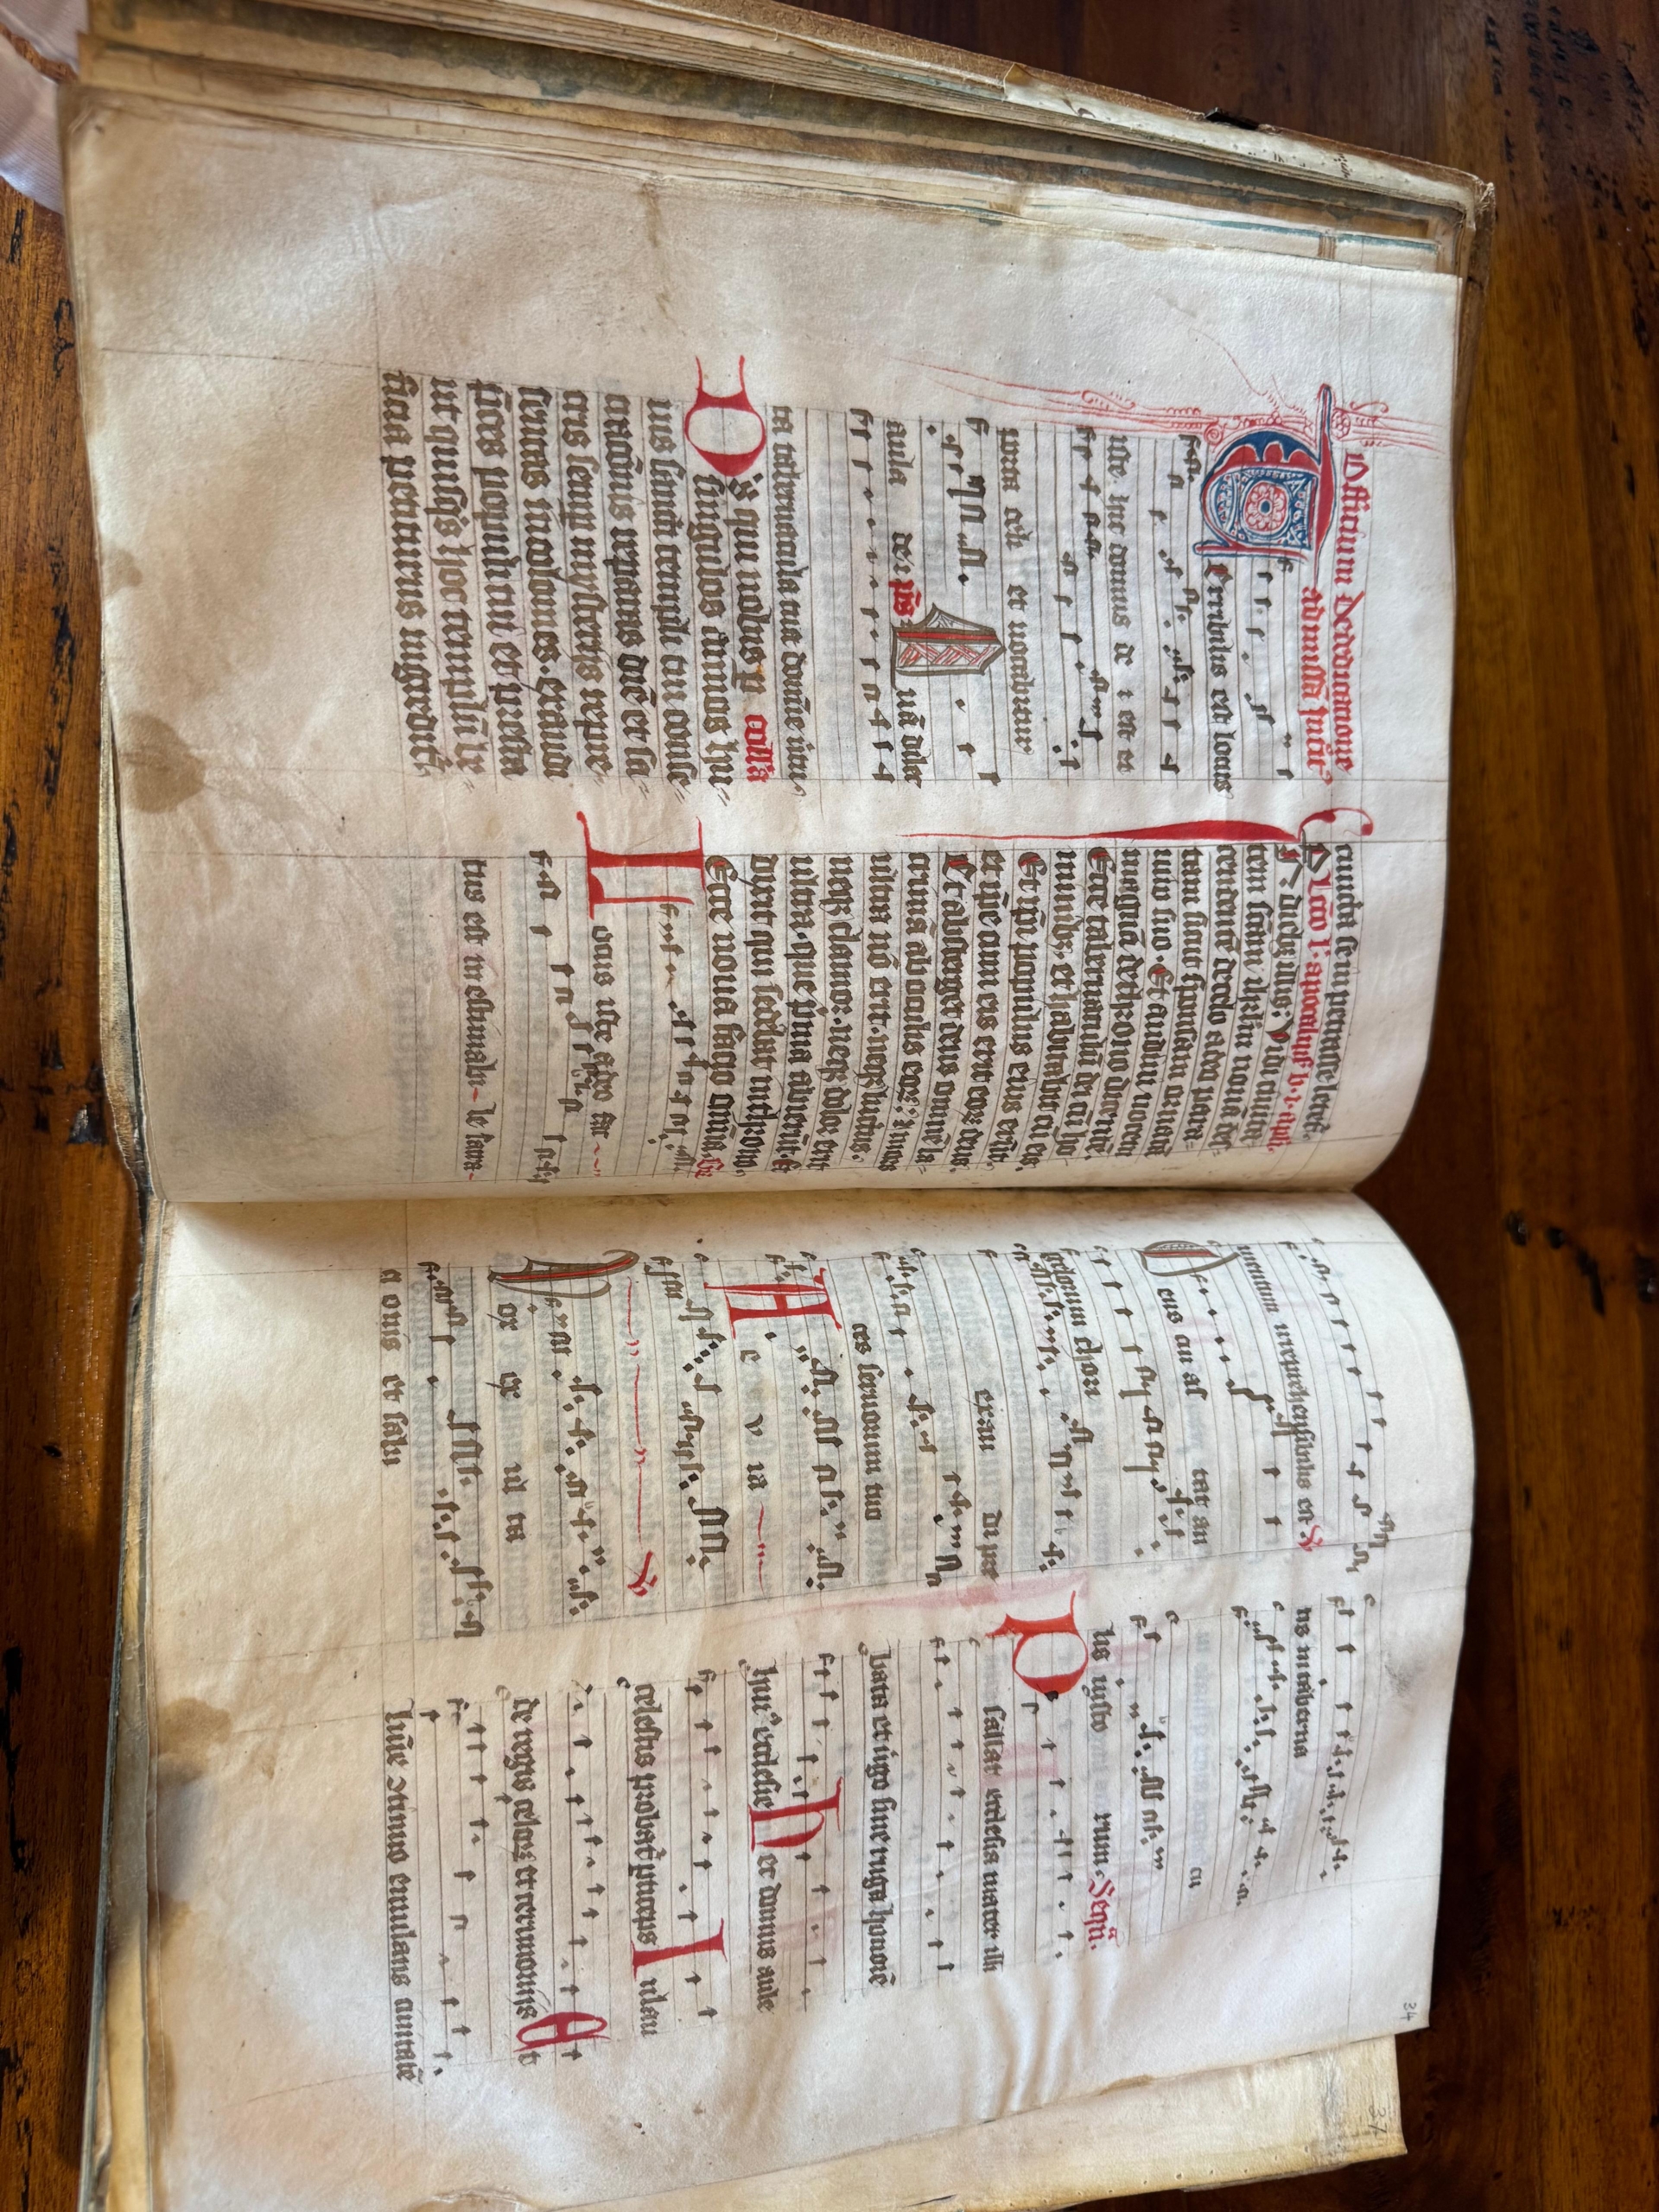 Officium dedicatione
ad missa introit
Erribilis est locus
iste hic domus de i est et
porta celi et uocabitur
aula dei ps Uā dilec
ta tabernacula tua domīe uirtu
collā
Ds qui nobis p
singulos annos hu-
ius sancti templi tui conse-
crationis reparas diē et sa-
cris semp mysteriis repre-
sentas incolomes. exaudi
preces populi tui et presta
ut quisqs hoc templū be-
ficia petiturus ingredit
cuncta se impetrasse letet.
Lco l. apocalyps b. i. apli.
In diebus illis: Vidi ciuita-
tem scam ihrlm nouā des-
cendentē de celo a deo para-
tam sicut sponsam ornatā
uiro suo. Et audiui uocem
magnā de throno dicentē.
Ecce tabernaculū dei cū ho-
minibz. et habitabit cū eis.
Et ipi populus eius erūt.
et ipe cum eis erit eoz deus.
Et absterget deus omnē la-
crimā ab oculis eoz: et mors
ultra nō erit. neqz luctus.
neqz clamor. neqz dolor erit
ultra. que prima abierūt. Et
dixit qui sedebat in throno.
Ecce noua facio omīa. Gr
Locus iste a deo fac
tus est inestimabi le sacra
mentum irreprehensibilis est V
Deus cui as tat an
gelorum chorus
exau di pre
ces seruorum tuo
Ae v ia
Vox ex ul ta
ti onis et salu
tis in taberna
cu
lis iusto rum. Sequ.
Psallat ecclesia mater illi
bata et uirgo sine ruga honorē
huius ecclesie Hec domus aule
celestis probatur particeps In lau
de regis celoz et cerimoniis Et
lumīe continuo emulans ciuitatē
34
37